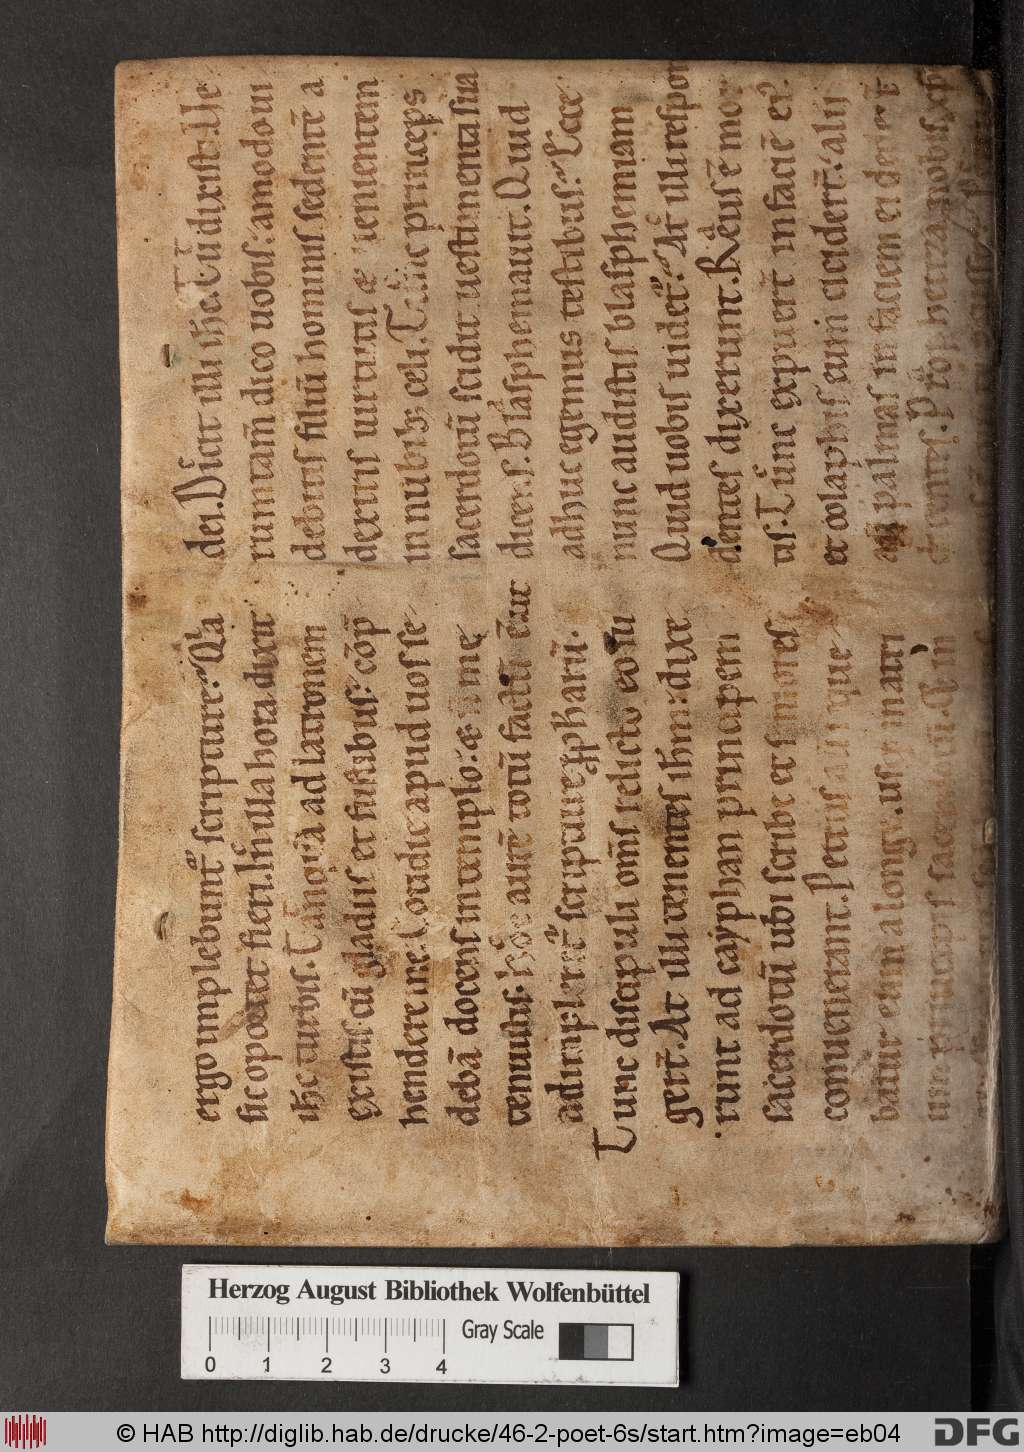 ergo implebunt̄ scripture. Q̄a
sic oportet fieri. In̄ illa hora dixit
ihc turbis. Tanquā ad latronem
existis cū gladiis et fustibus: cōp̄
hendere me. Cotidie apud uos se
debā docens in templo. & n̄ me
tenuistis. hoc autē totū factū ē. ut
adimplerent̄ scripture p̱phetarū.
Tunc discipuli om̄s relicto eo fu
gert̄. At illi tenentes ihm: duxe
runt ad cayphan principem
sacerdotū ubi scribe et seniores
conuenerant. Petrus aut que
batur eum a longe. usq; in atri
um principis sacerdotū. Et in
dei. Dicit illi ihc. Tu dixisti. Ue
runtam̄ dico uobis: amodo ui
debitis filiū hominis sedentē a
dextris uirtutis & uenientem
in nubib; celi. Tunc princeps
sacerdotū scidit uestimenta sua
dicens. Blasphemauit. Quid
adhuc egemus testibus: Ecce
nunc audistis blasphemiam
Quid uobis uidet̄: At illi respon
dentes dixerunt. Reus ē mor
tis. Tunc expuert̄ in faciē ei᷒.
et colaphis eum ciciderт̄: alij
aū palmas in faciem ei dedert̄
dicentes. Prophetiza nobis xp̄e
Herzog August Bibliothek Wolfenbüttel
0 1 2 3 4
Gray Scale
© HAB http://diglib.hab.de/drucke/46-2-poet-6s/start.htm?image=eb04
DFG